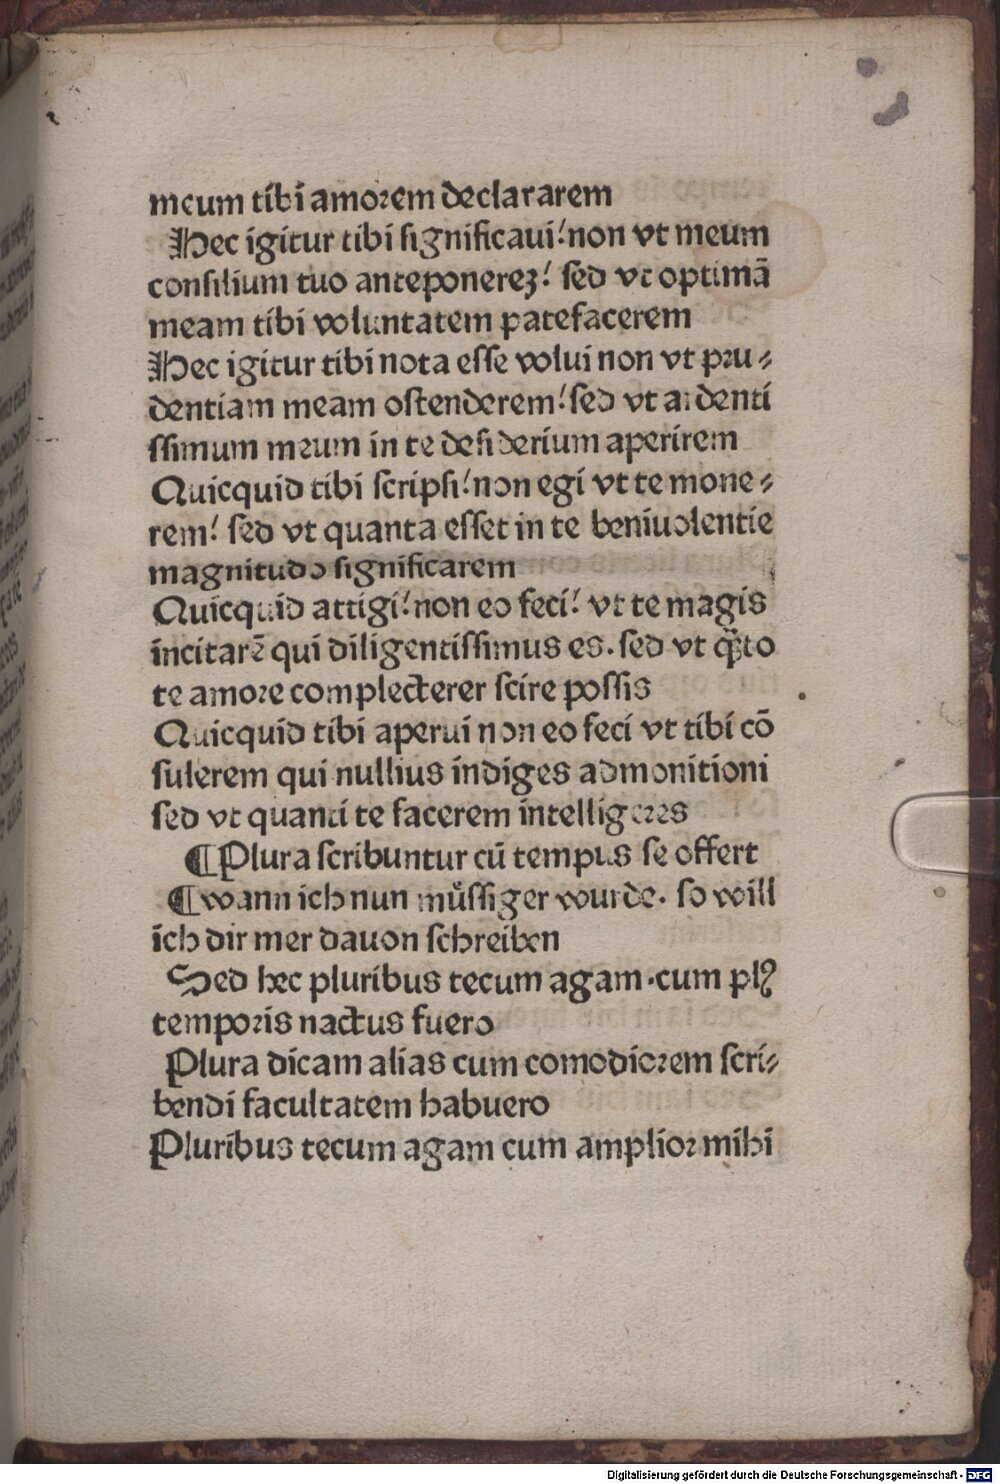 meum tibi amorem declararem
Hec igitur tibi significaui! non vt meum
consilium tuo anteponereʒ! sed vt optimā
meam tibi voluntatem patefacerem
Hec igitur tibi nota esse volui non vt pru⸗
dentiam meam ostenderem! sed vt ardenti
ssimum meum in te desiderium aperirem
Quicquid tibi scripsi! non egi vt te mone⸗
rem! sed vt quanta esset in te beniuolentie
magnitudo significarem
Quicquid attigi! non eo feci! vt te magis
incitarē qui diligentissimus es. sed vt q̄to
te amore complecterer scire possis
Quicquid tibi aperui non eo feci vt tibi cō
sulerem qui nullius indiges admonitioni
sed vt quanti te facerem intelligeres
¶ Plura scribuntur cū tempus se offert
¶ wann ich nun můssiger wurde. so will
ich dir mer dauon schreiben
Sed hec pluribus tecum agam. cum plꝰ
temporis nactus fuero
Plura dicam alias cum comodiorem scri⸗
bendi facultatem habuero
Pluribus tecum agam cum amplior mihi
Digitalisierung gefördert durch die Deutsche Forschungsgemeinschaft - DFG